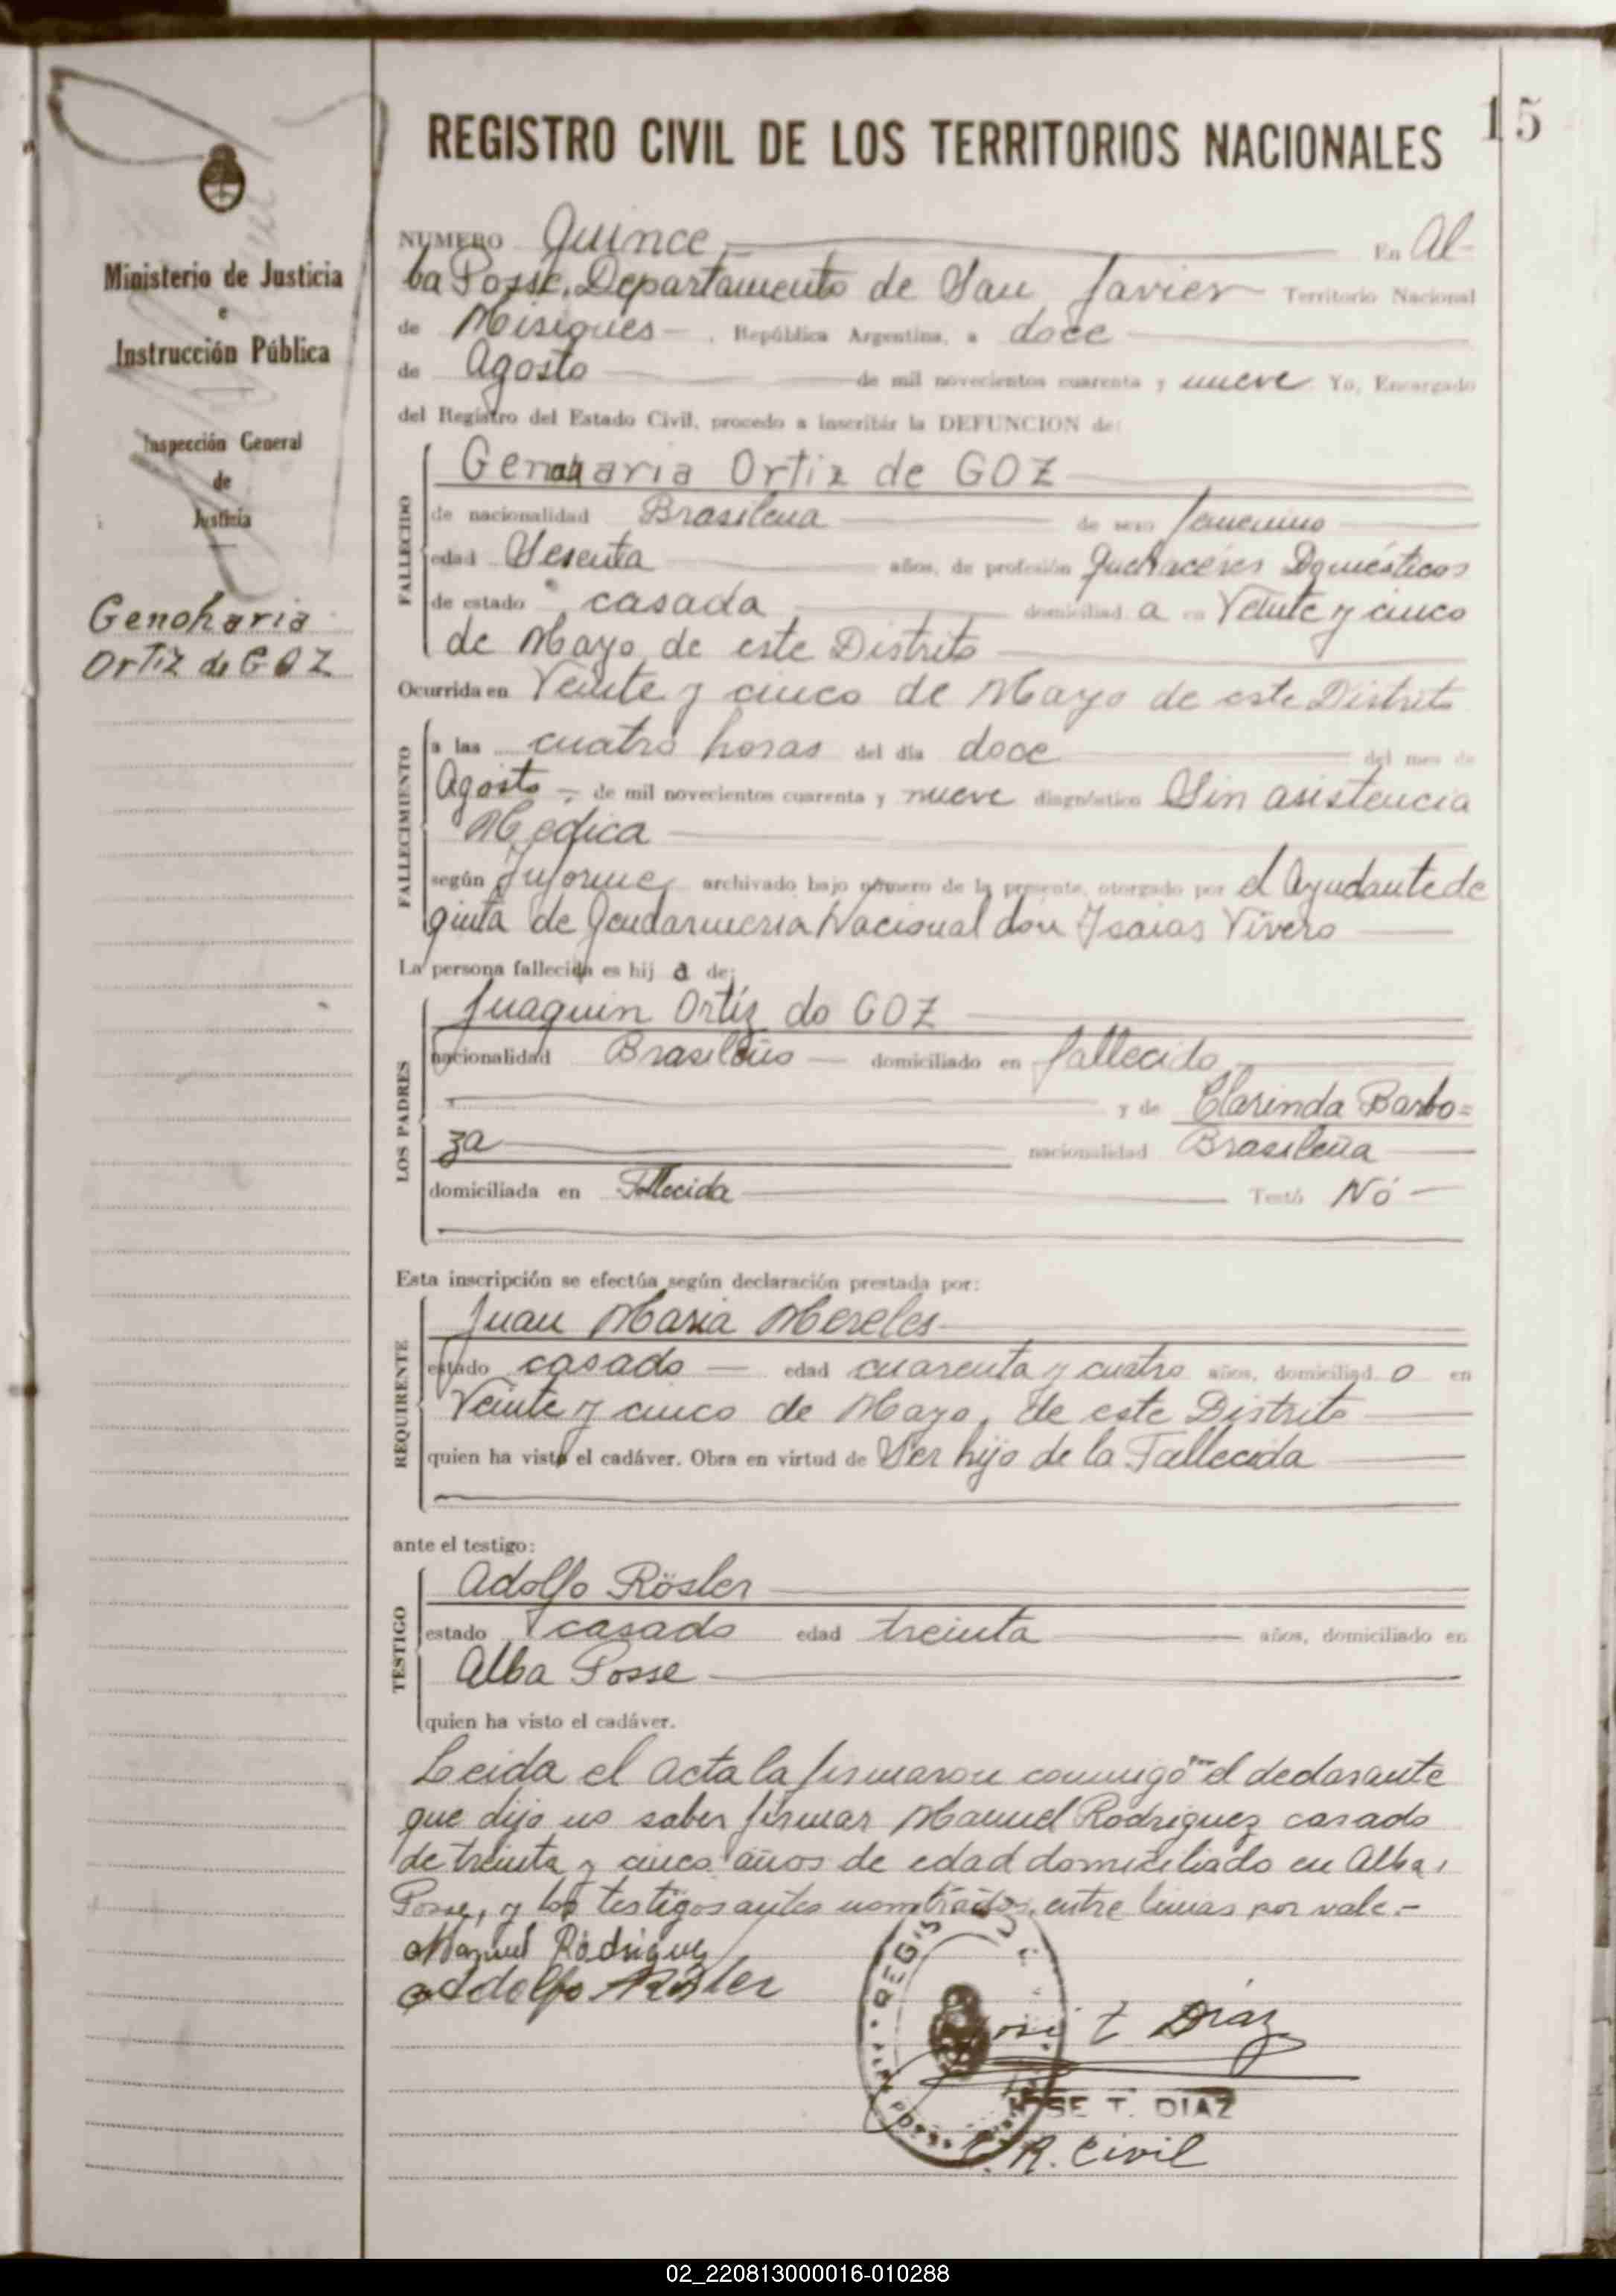 15
REGISTRO CIVIL DE LOS TERRITORIOS NACIONALES
Ministerio de Justicia
e
Instrucción Pública
Inspección General
de
Justicia
Genoharia
Ortiz de GOZ
NUMERO Quince, En Al-
ba Posse, Departamento de San Javier Territorio Nacional
de Misiones, República Argentina, a doce
de Agosto de mil novecientos cuarenta y nueve Yo, Encargado
del Registro del Estado Civil, procedo a inscribir la DEFUNCION de:
FALLECIDO
Genoharia Ortiz de GOZ
de nacionalidad Brasilena de sexo femenino
edad Sesenta años, de profesión Quehaceres Domésticos
de estado casada domiciliad a en Veinte y cinco
de Mayo de este Distrito
Ocurrida en Veinte y cinco de Mayo de este Distrito
FALLECIMIENTO
a las cuatro horas del día doce del mes de
Agosto de mil novecientos cuarenta y nueve diagnóstico Sin asistencia
Medica
según Informe archivado bajo número de la presente, otorgado por el Ayudante de
quinta de Gendarmeria Nacional don Isaias Vivero
La persona fallecida es hij a de:
LOS PADRES
Juaquin Ortíz do GOZ
nacionalidad Brasileño domiciliado en fallecido
y de Clarinda Barbo=
za nacionalidad Brasileña
domiciliada en Fallecida Testó Nó
Esta inscripción se efectúa según declaración prestada por:
REQUIRENTE
Juan Maria Mereles
estado casado edad cuarenta y cuatro años, domiciliad o en
Veinte y cinco de Mayo, de este Distrito
quien ha visto el cadáver. Obra en virtud de Ser hijo de la Fallecida
ante el testigo:
TESTIGO
Adolfo Rösler
estado casado edad treinta años, domiciliado en
Alba Posse
quien ha visto el cadáver.
Leida el acta la firmaron conmigo por el declarante
que dijo no saber firmar Manuel Rodriguez casado
de treinta y cinco años de edad domiciliado en Alba
Posse, y los testigos antes nombrados, entre lineas por vale.-
Manuel Rodriguez
Adolfo Rösler
José T Diaz
JOSE T. DIAZ
R. Civil
02_220813000016-010288